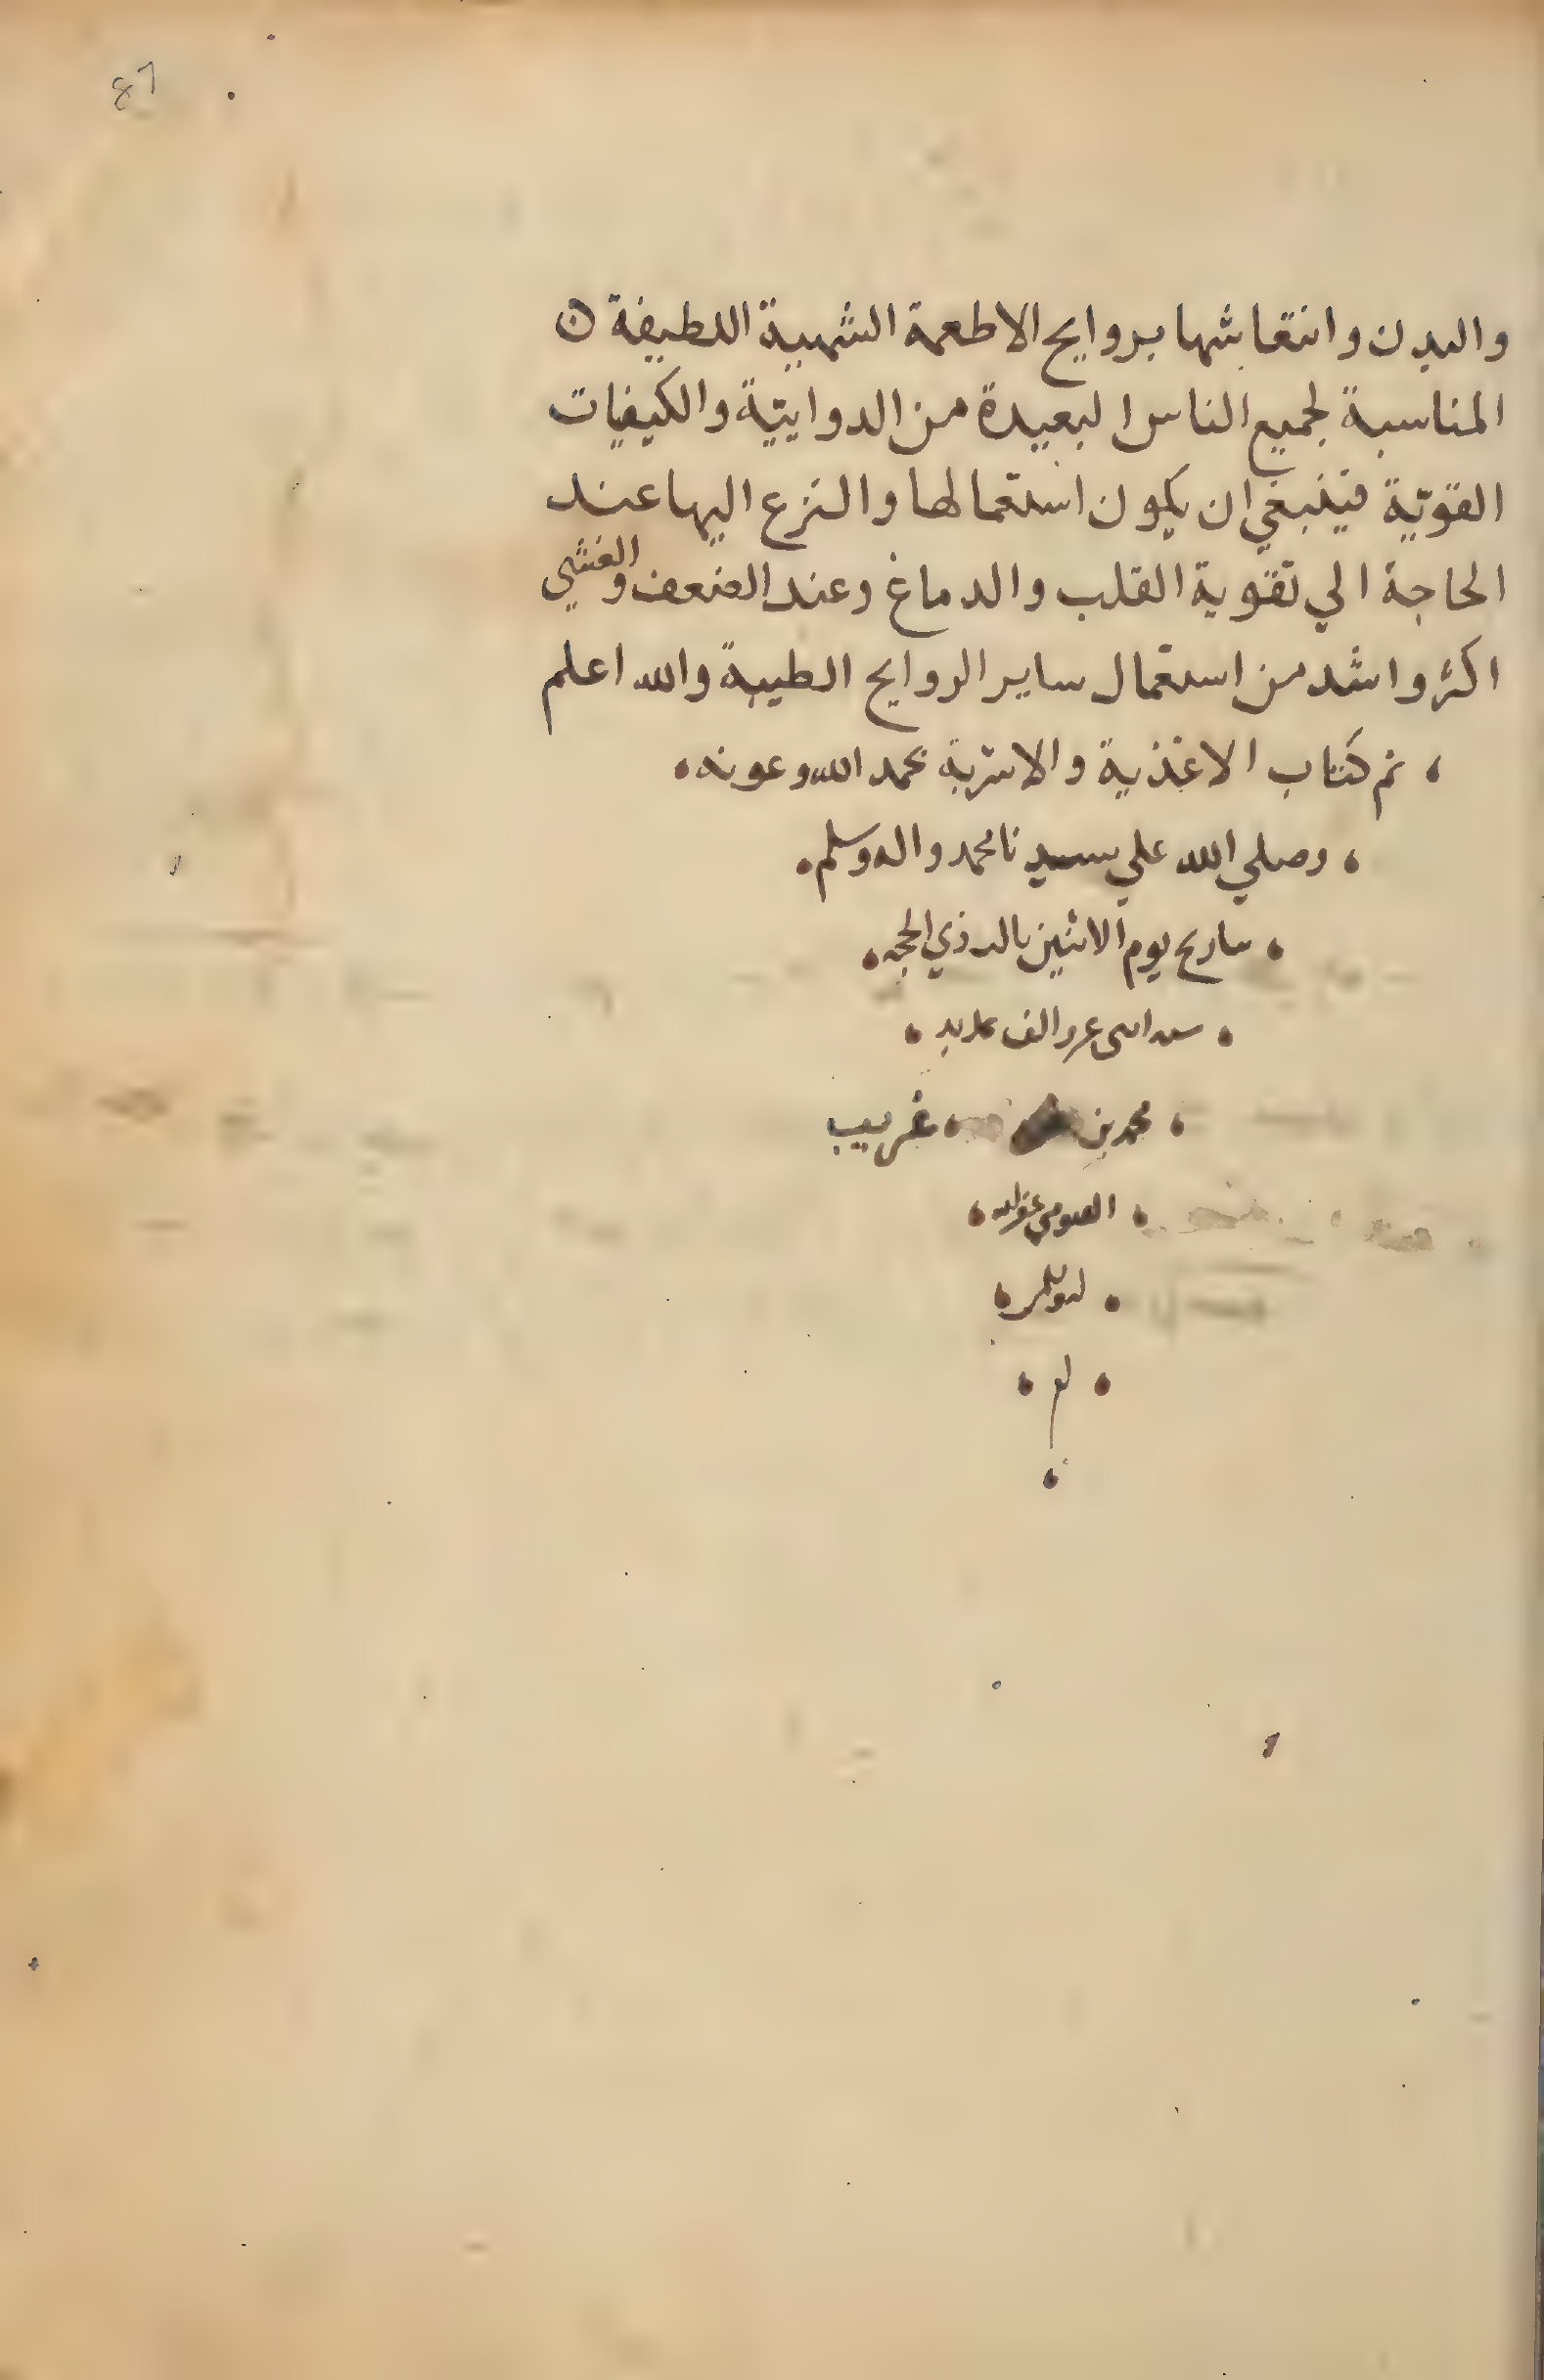 ٤٦
والبدن وانتعاشها بروايح الاطعمة الشهية اللطيفة
المناسبة لجميع الناس البعيدة من الدوايية والكيفيات
القوية فينبغي ان يكون استعمالها والنزع اليها عند
الحاجة الي تقوية القلب والدماغ وعند الضعف والغشي
اكثر واشد من استعمال ساير الروايح الطيبة والله اعلم
تم كتاب الاغذية والاشربة بحمد الله وعونه
وصلي الله علي سيدنا محمد واله وسلم
بتاريخ يوم الاثنين ثالث ذي الحجه
سنه اثنى عشر والف
محمد بن غريب
غفر الله